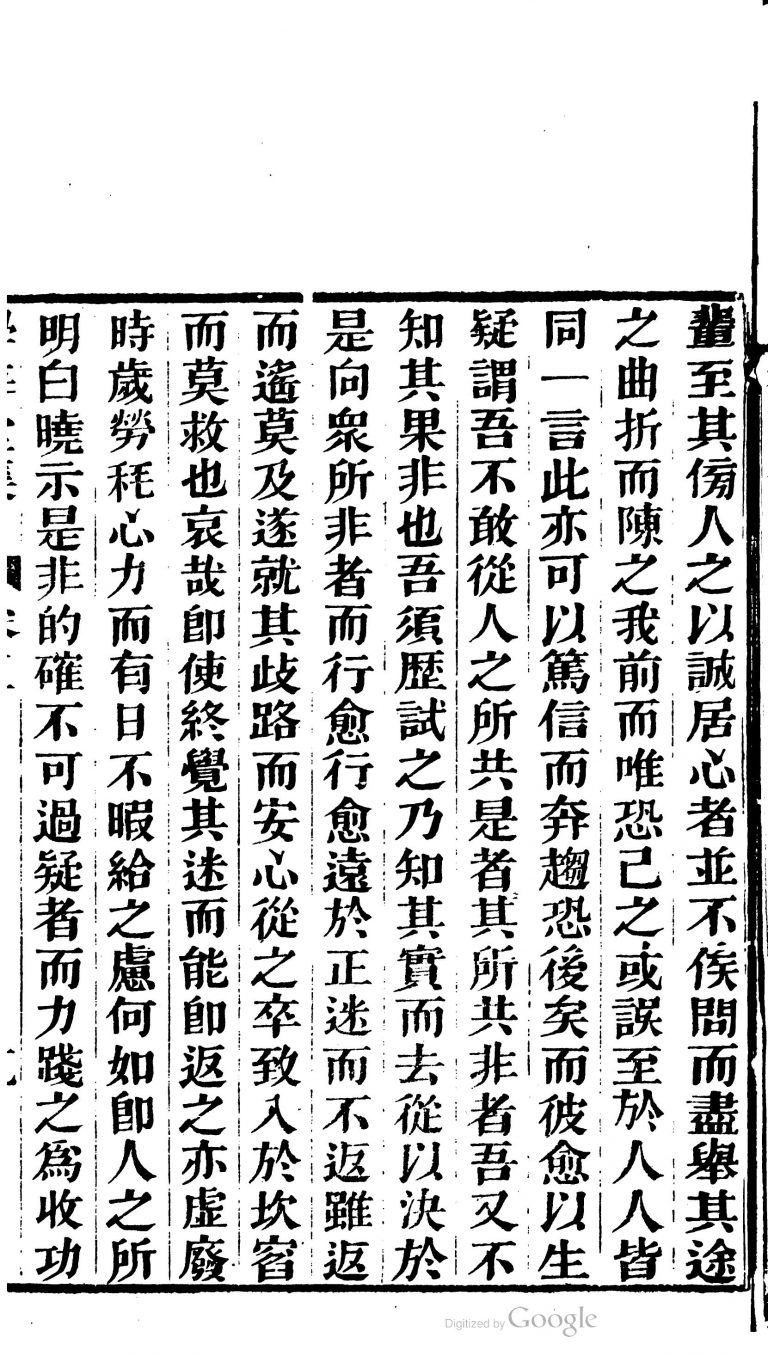 輩至其傍人之以誠居心者並不俟問而盡舉其途
之曲折而陳之我前而唯恐己之或誤至於人人皆
同一言此亦可以篤信而奔趨恐後矣而彼愈以生
疑謂吾不敢從人之所共是者其所共非者吾又不
知其果非也吾須歷試之乃知其實而去從以決於
是向眾所非者而行愈行愈遠於正迷而不返雖返
而遙莫及遂就其歧路而安心從之卒致入於坎窞
而莫救也哀哉卽使終覺其迷而能卽返之亦虛廢
時歲勞秏心力而有日不暇給之慮何如卽人之所
明白曉示是非的確不可過疑者而力踐之為收功
Digitized by Google